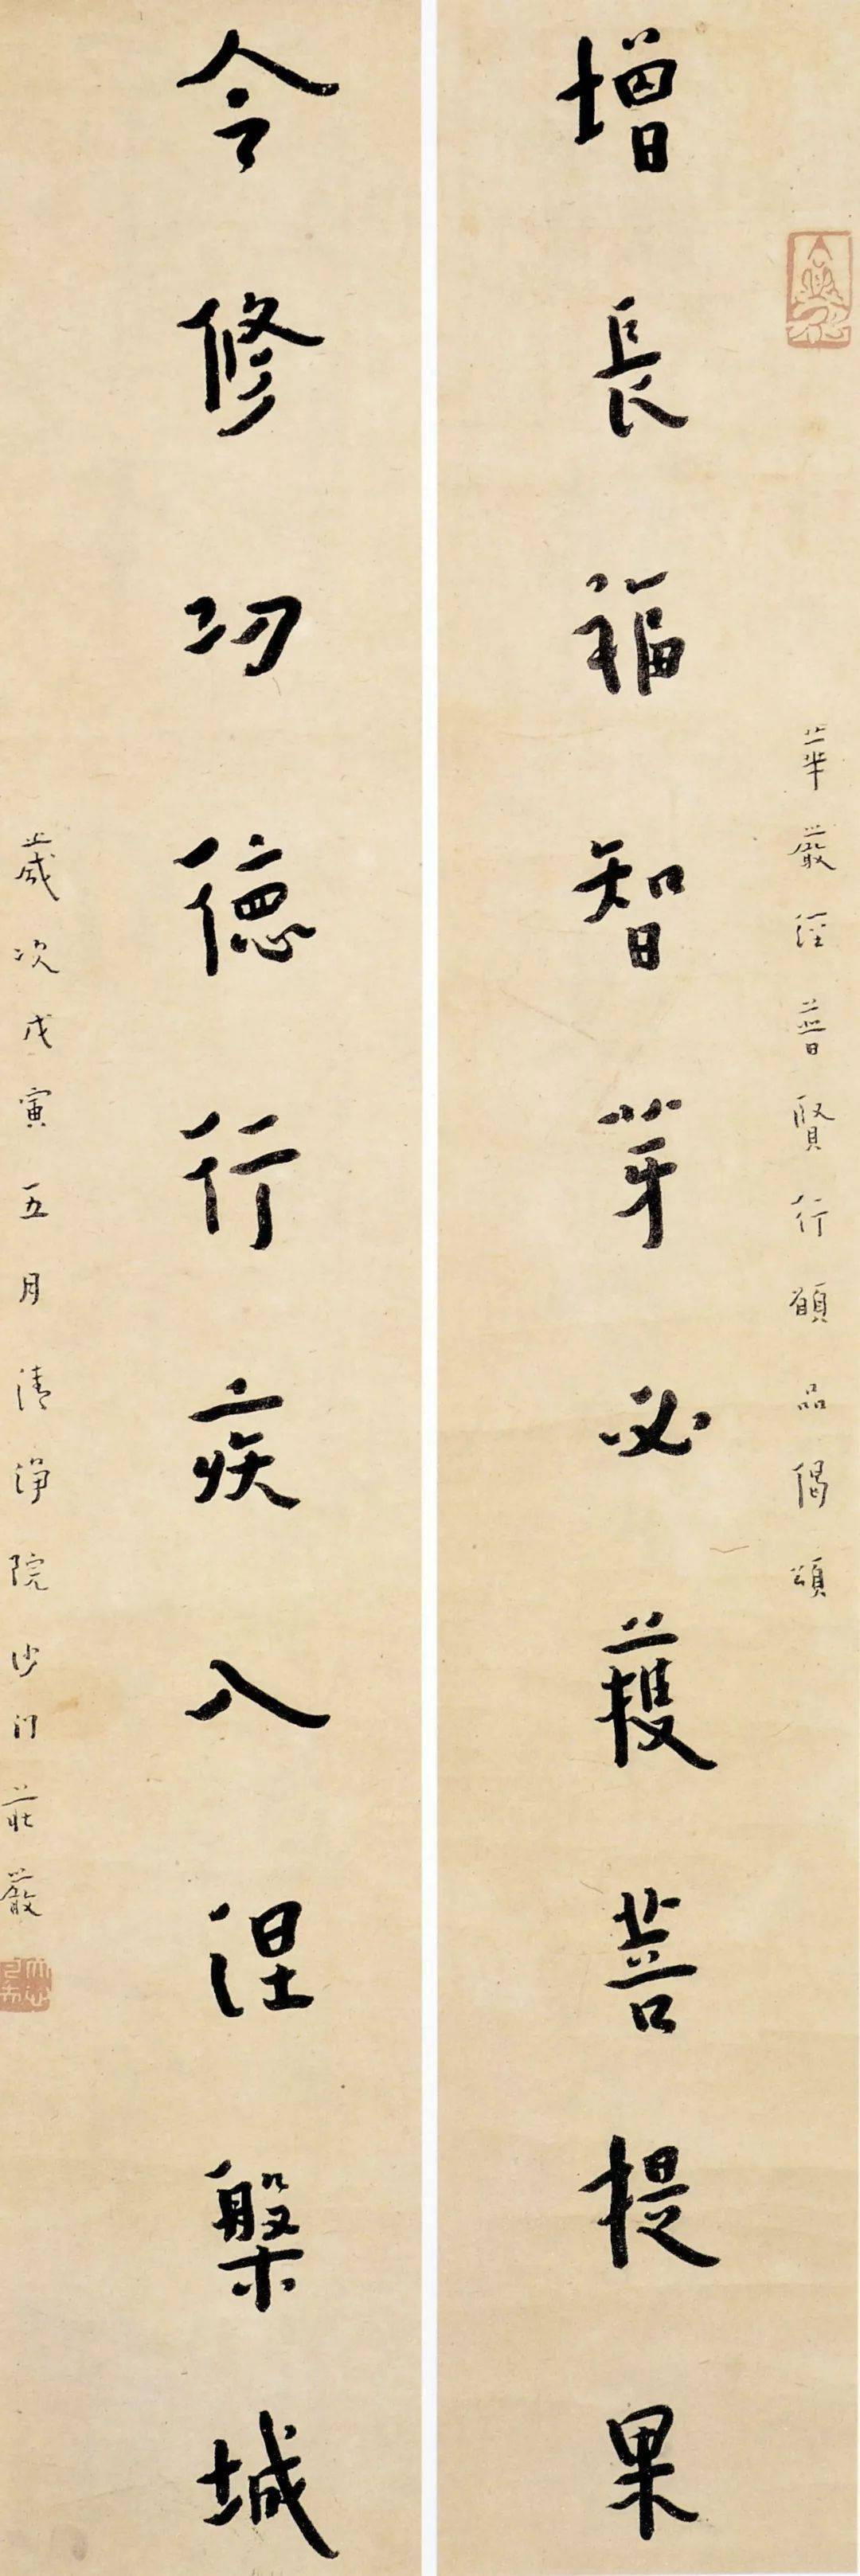 華嚴經普賢行願品偈頌
增長福智芽必獲菩提果
令修功德行疾入涅槃城
歲次戊寅五月清淨院沙門莊嚴